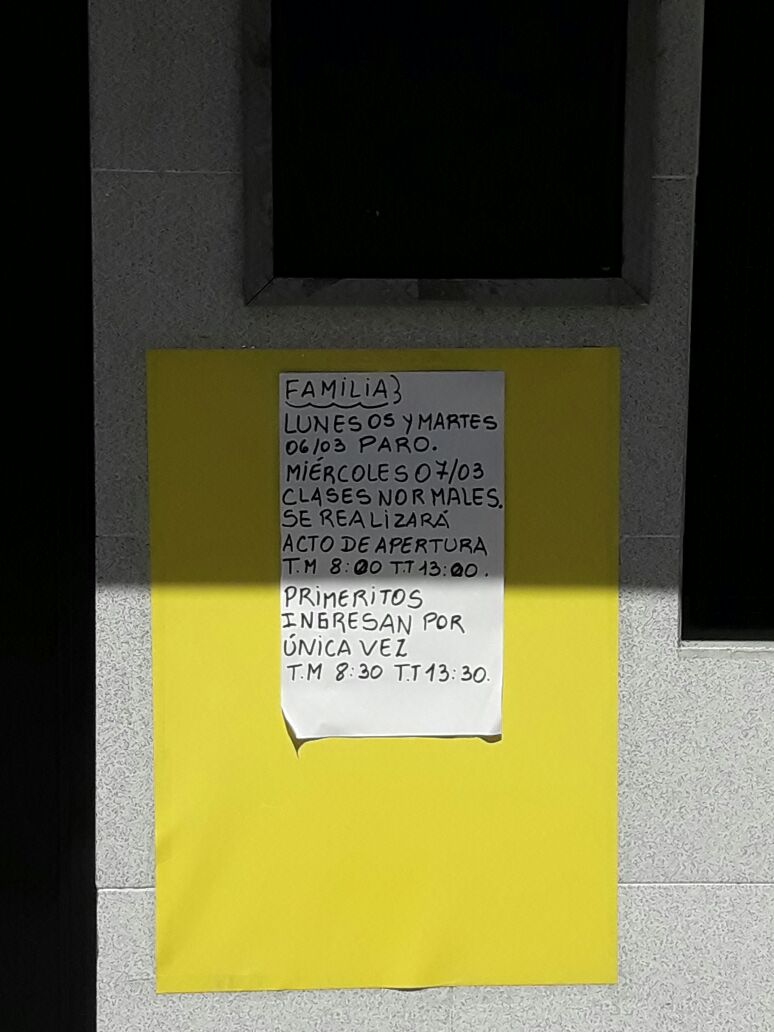 FAMILIA}
LUNES 05 Y MARTES
06/03 PARO.
MIÉRCOLES 07/03
CLASES NORMALES.
SE REALIZARÁ
ACTO DE APERTURA
T.M 8:00 T.T 13:00.
PRIMERITOS
INGRESAN POR
ÚNICA VEZ
T.M 8:30 T.T 13:30.